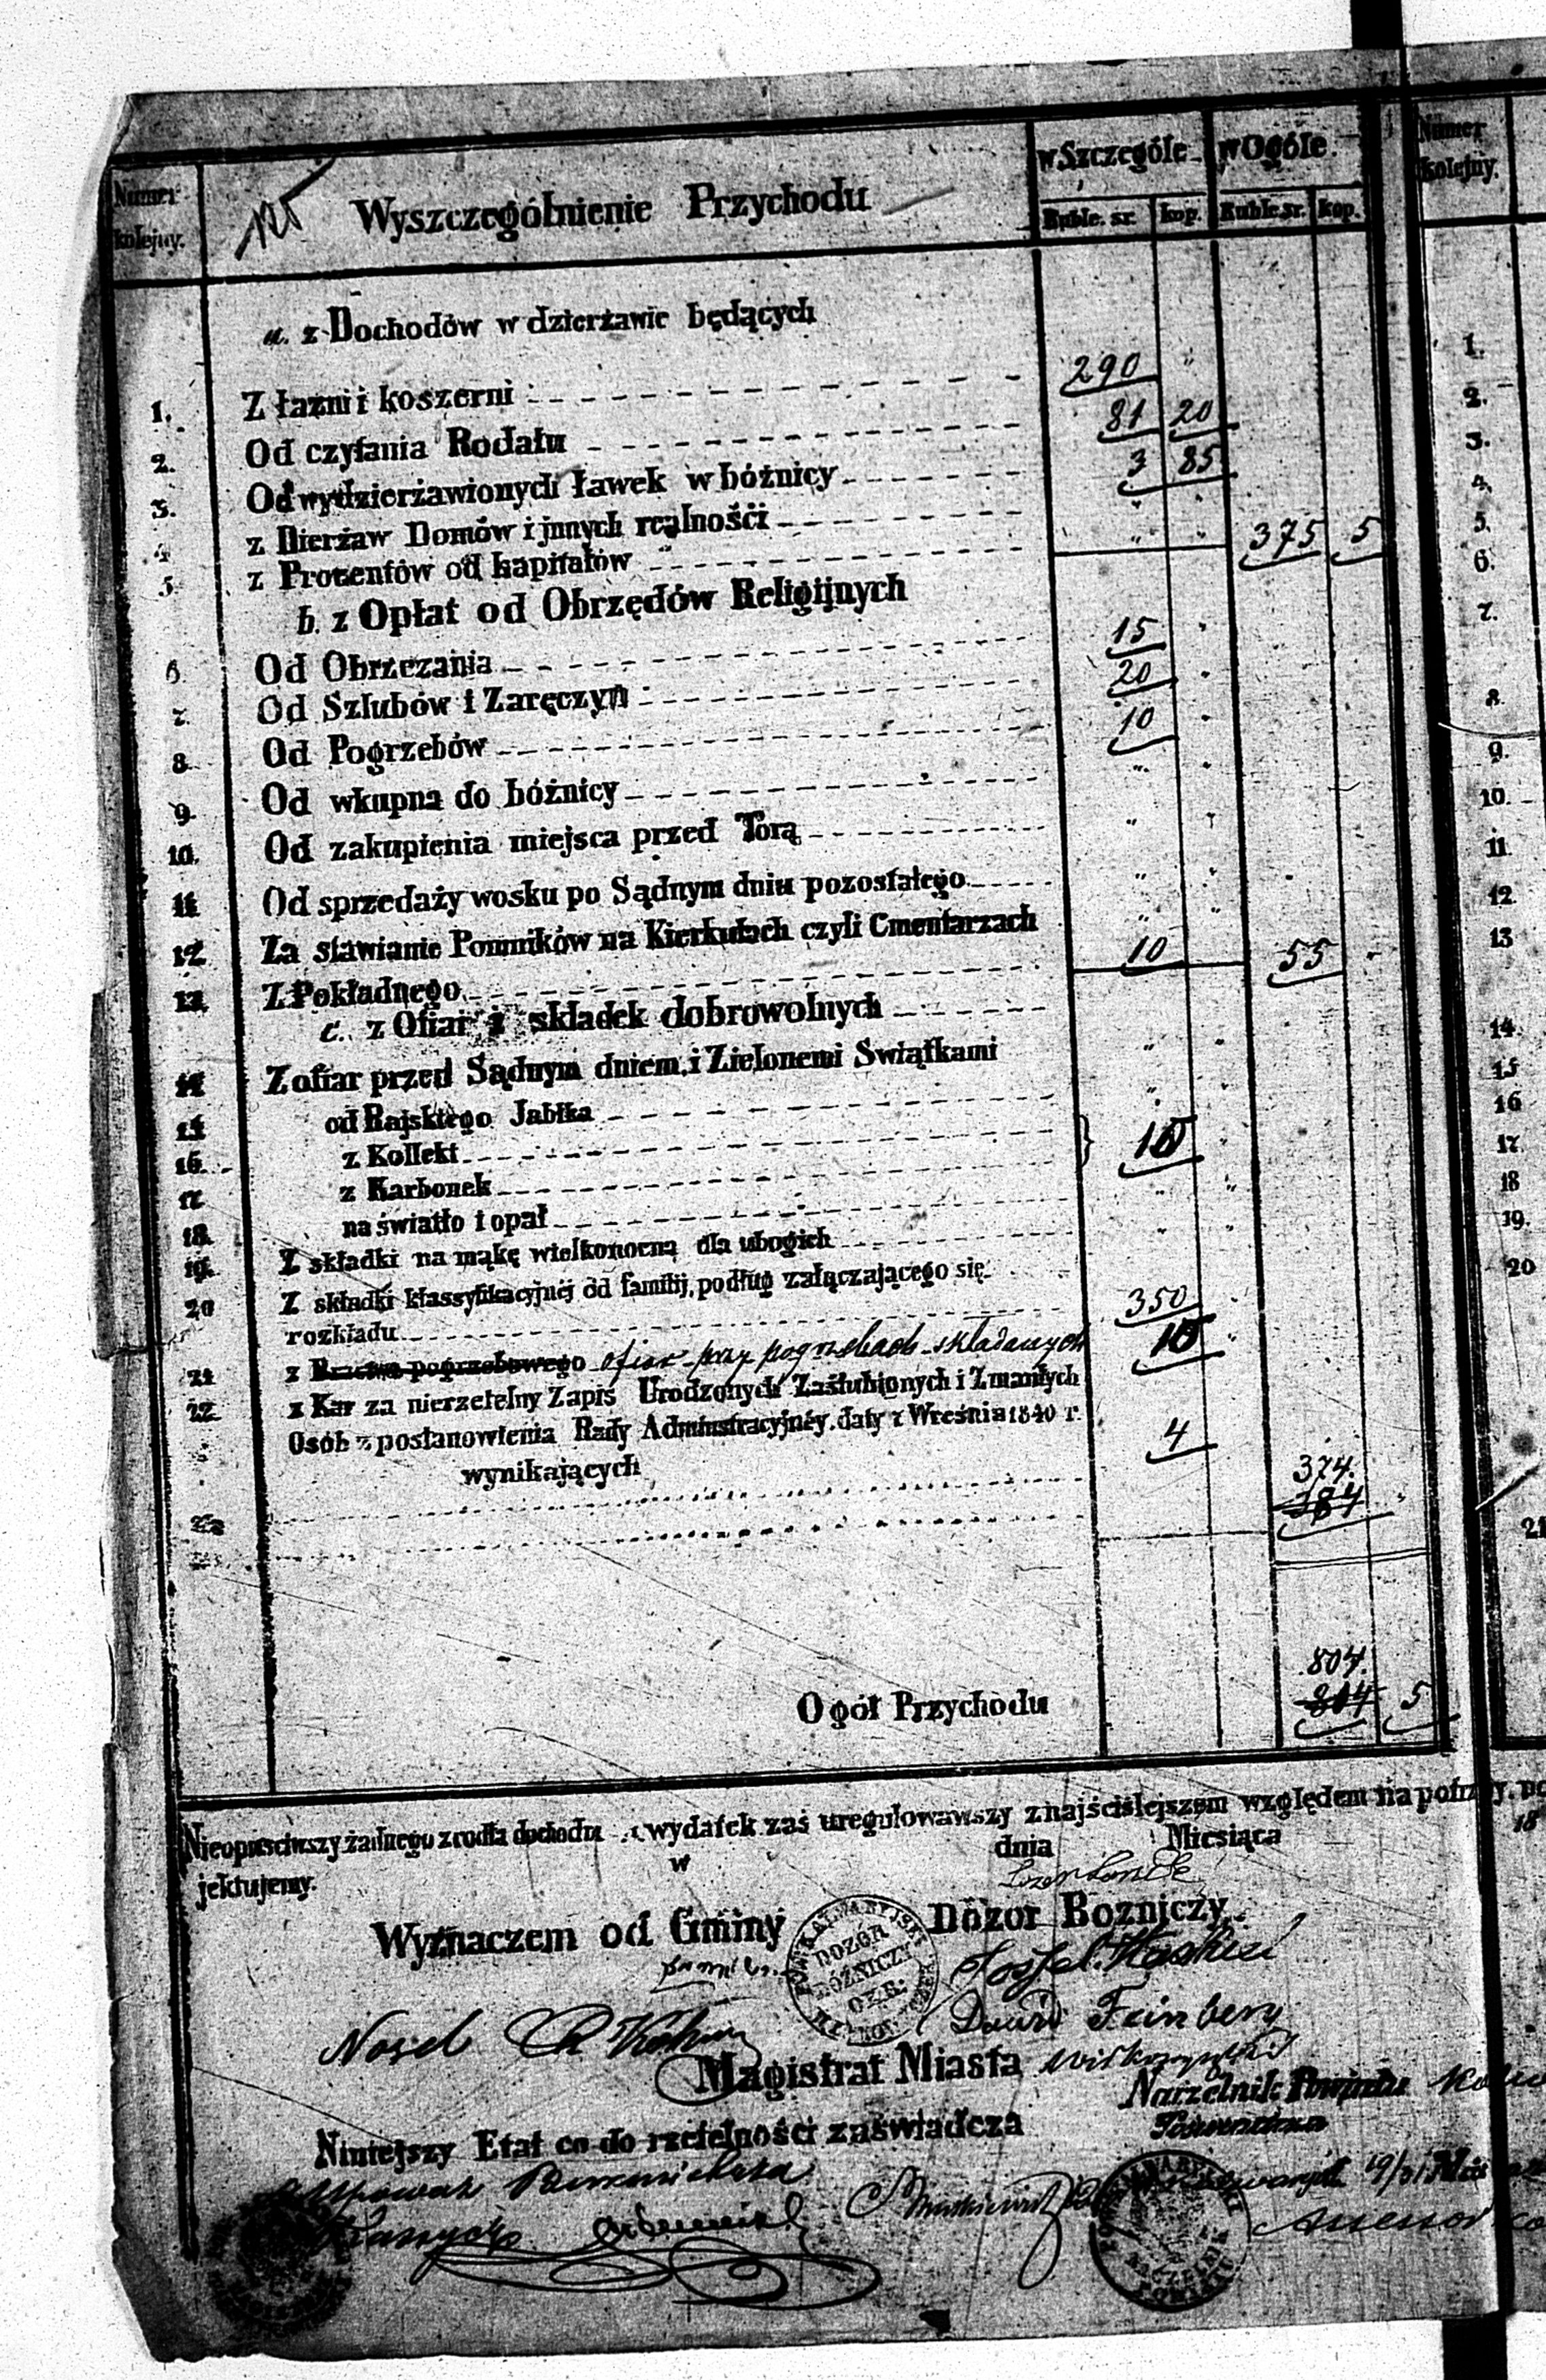 Numer kolejny.
Wyszczególnienie Przychodu
w Szczególe w Ogóle.
Ruble. sr. kop. Ruble. sr. kop.
a. z Dochodów w dzierżawie będących
1. Z łaźni i koszerni 290 "
2. Od czytania Rodału 81 20
3. Od wydzierżawionych ławek w bóżnicy 3 85
4 z Dierżaw Domów i jnnych realnośći " "
5. z Procentów od kapitałów " " 375 5
b. z Opłat od Obrzędów Religijnych
6. Od Obrzezania 15 "
7. Od Szlubów i Zaręczyn 20 "
8. Od Pogrzebów 10 "
9. Od wkupna do bóżnicy " "
10. Od zakupienia miejsca przed Torą " "
11 Od sprzedaży wosku po Sądnym dniu pozostałego " "
12. Za stawianie Pomników na Kierkutach czyli Cmentarzach " "
13. Z Pokładnego 10 55
c. z Ofiar i składek dobrowolnych
14 Z ofiar przed Sądnym dniem, i Zielonemi Swiątkami " "
15 od Rajskiego Jabłka " "
16. z Kollekt
17 z Karbonek } 10 "
18. na światło i opał " "
19. Z składki na mąkę wielkonocną dla ubogich " "
20 Z składki klassyfikacyjnéj od familij, podług załączającego się
rozkładu 350 "
21 z Bractwa pogrzebowego ofiar przy pogrzebach składanych 10 "
22. z Kar za nierzetelny Zapis Urodzonych Zaślubionych i Zmarłych
Osób z postanowienia Rady Administracyjnéy. daty z Wreśnia 1840 r.
wynikających 4
374.
23 384
804.
Ogół Przychodu 814 5
Nieopuściwszy żadnego zrodła dochodu a wydatek zaś uregulowawszy z najściślejszem względem na
jektujemy. w dnia Miesiąca
Wyznaczem od Gminy Dozor Bozniczy.
DOZÓR BÓŻNICZY
Josel
Dawid Feinberg
Magistrat Miasta
Naczelnik Powiatu
Niniejszy Etat co do rzetelności zaświadcza
Numer kolejny.
1.
2.
3.
4.
5.
6.
7.
8.
9.
10.
11.
12.
13
14.
15
16
17.
18
19.
20
21